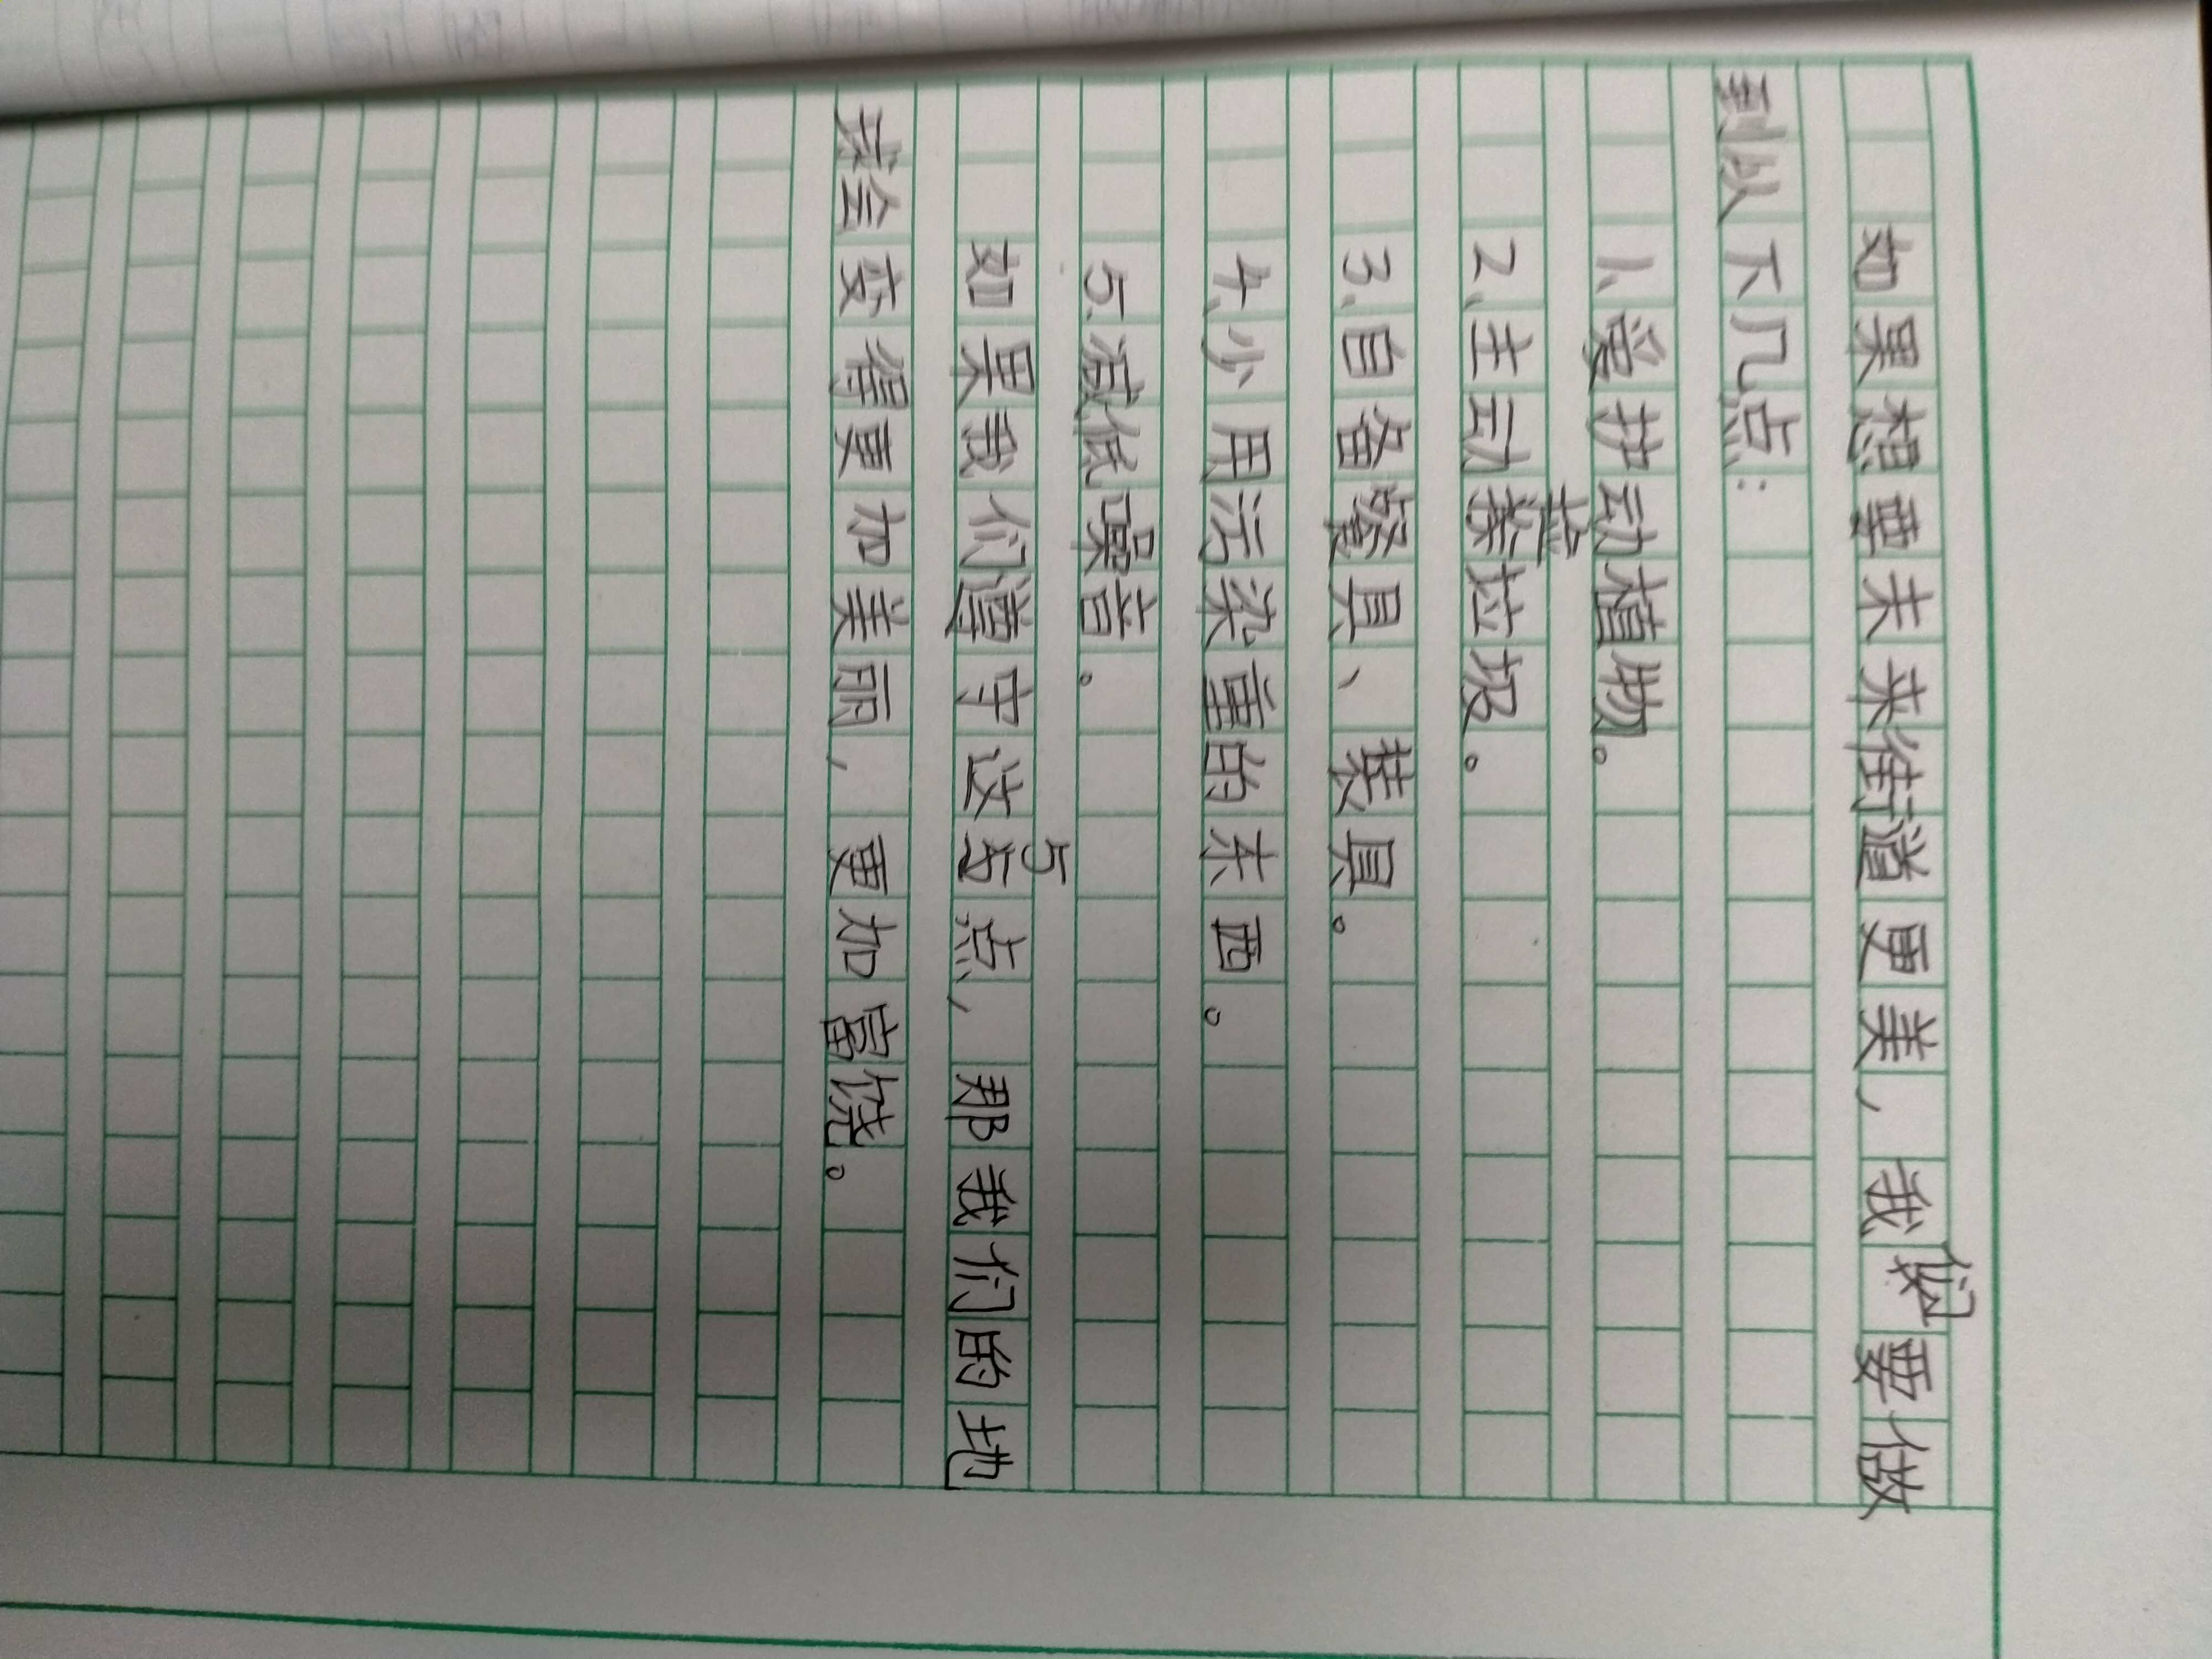 如果想要未来街道更美，我们要做
到以下几点：
1.爱护动植物。
2.主动捡垃圾。
3.自备餐具、装具。
4.少用污染重的东西。
5.减低噪音。
如果我们遵守这5点，那我们的地
球会变得更加美丽，更加富饶。